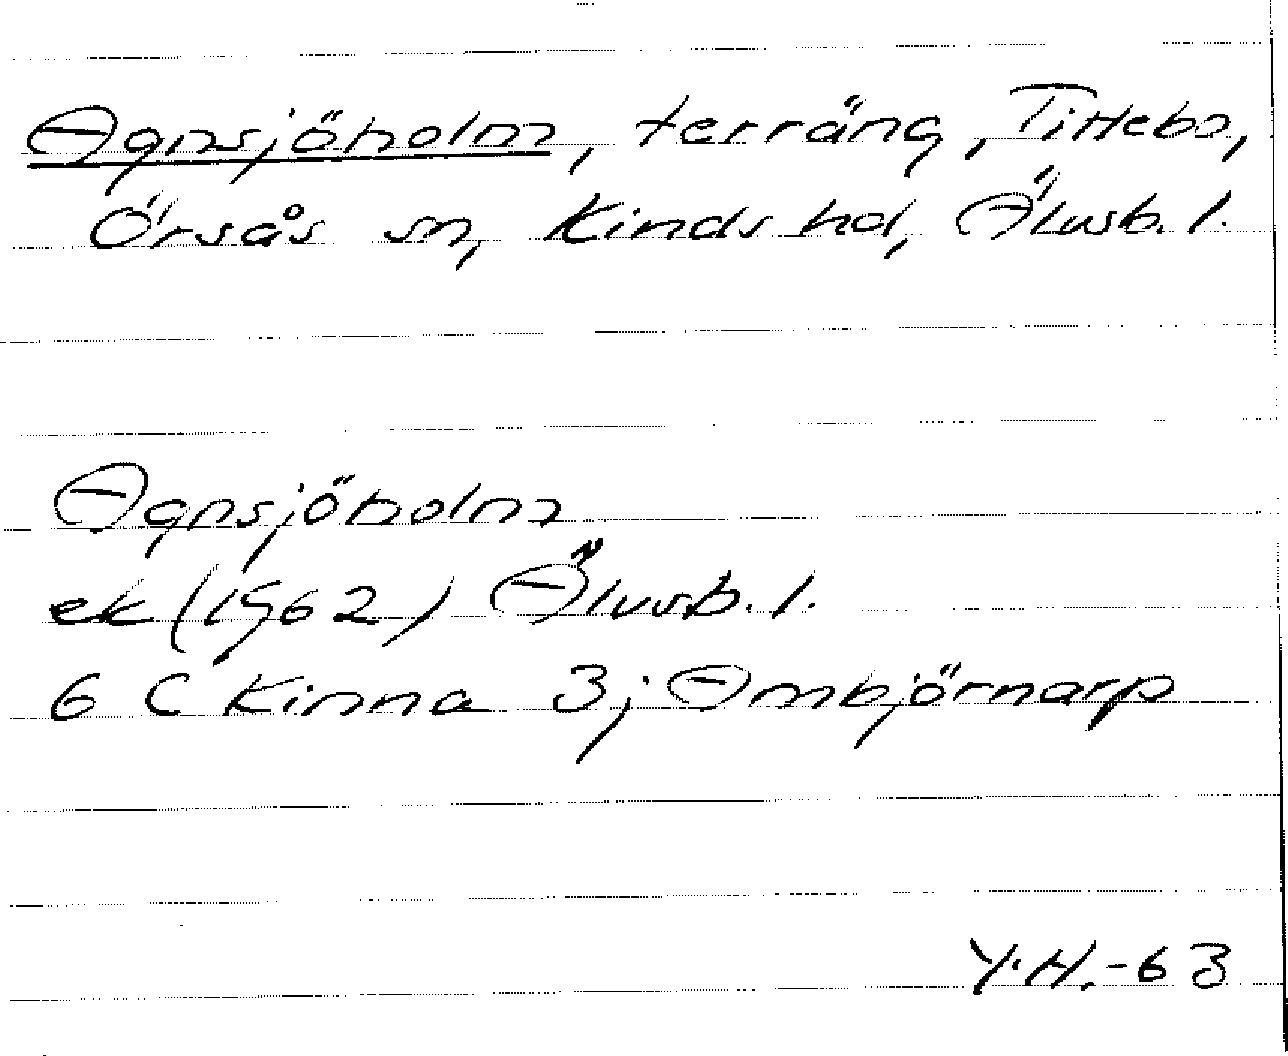 Agnsjöholm, terräng, Tittebo,
Örsås sn, Kinds hd, Älvsb. l.
Agnsjöholm
ek (1962) Älvsb. l.
6 C Kinna 3j Ambjörnarp
Y.H.-63